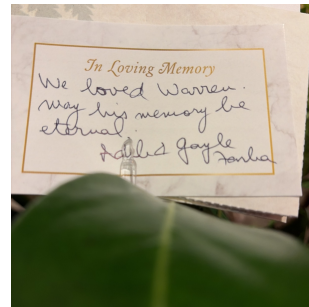 In Loving Memory
We loved Warren.
May his memory be
eternal.
Gayle